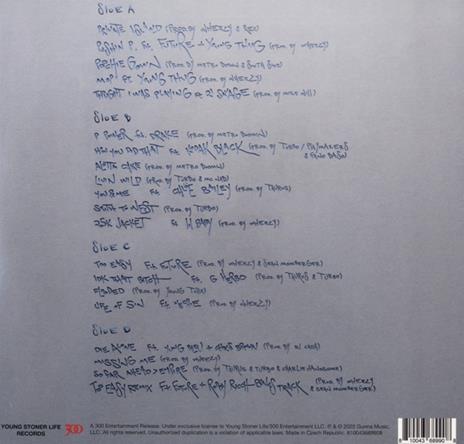 SIDE A
PRIVATE ISLAND (PROD BY WHEEZY &
PUSHIN P Ft. FUTURE + YOUNG THUG (PROD. BY WHEEZY)
POOCHIE GOWN (PROD. BY METRO BOOMIN & SOUTH SIDE)
MOP Ft. YOUNG THUG (PROD. BY WHEEZY)
THOUGHT I WAS PLAYING Ft 21 SAVAGE (PROD. BY MIKE WILL)
SIDE B
P POWER Ft. DRAKE (PROD. BY METRO BOOMIN)
HOW YOU DID THAT Ft. KODAK BLACK (PROD. BY TURBO /
&
ALOTTA CAKE (PROD. BY METRO BOOMIN)
LIVIN WILD (PROD. BY TURBO &
YOU & ME Ft. CHLOE BAILEY (PROD. BY TAURUS)
SOUTH TO WEST (PROD. BY TURBO)
25K JACKET Ft. LIL BABY (PROD. BY WHEEZY)
SIDE C
TOO EASY Ft. FUTURE (PROD. BY WHEEZY & SEAN MOMBERGER)
IDK THAT BITCH Ft. G HERBO (PROD. BY TAURUS & TURBO)
FLOODED (PROD. BY YOUNG
LIFE OF SIN Ft. NECHIE (PROD. BY WHEEZY)
SIDE D
DIE ALONE Ft. YUNG BLEU + CHRIS BROWN (PROD. BY
MISSING ME (PROD. BY WHEEZY)
SO FAR AHEAD > EMPIRE (PROD. BY TAURUS & TURBO & CHARLIE HANDSOME)
TOO EASY REMIX Ft. FUTURE + RODDY RICCH - BONUS TRACK (PROD. BY WHEEZY
& SEAN MOMBERGER)
YOUNG STONER LIFE
RECORDS
300
A 300 Entertainment Release. Under exclusive license to Young Stoner Life/300 Entertainment LLC. ℗ & © 2022 Gunna Music,
LLC. All rights reserved. Unauthorized duplication is a violation of applicable laws. Made in Czech Republic. 810043688908
8 10043 68890 8